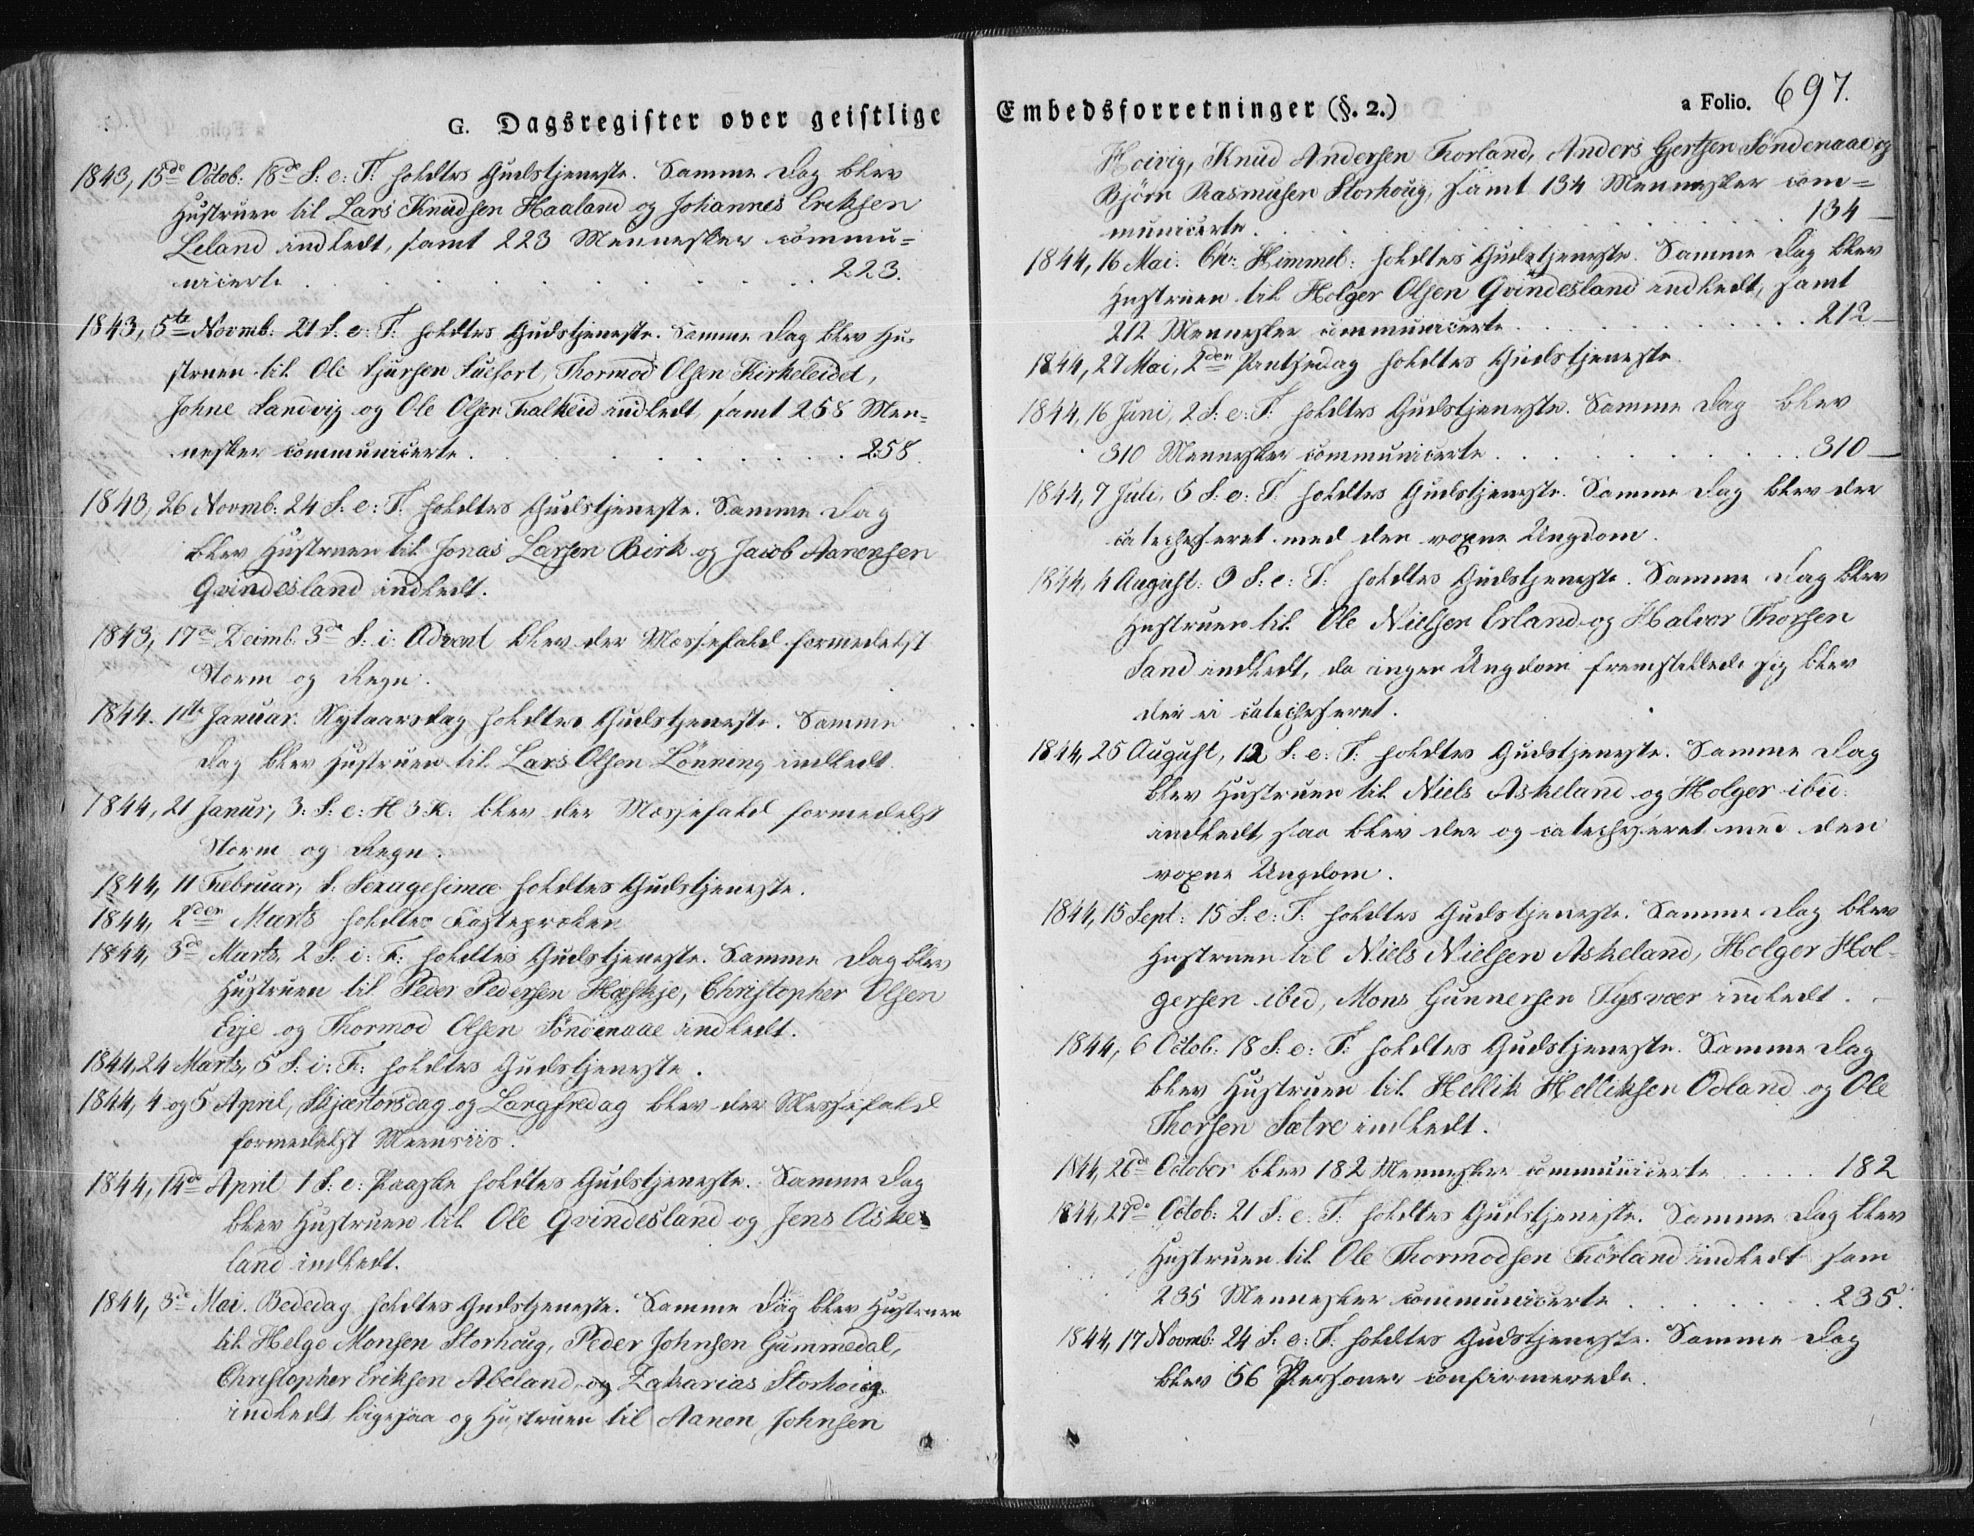 G. Dagsregister over geistlige
1843, 15de Octob: 18de S: e: T: holdtes Gudstjeneste. Samme Dag blev
Hustruen til Lars Knudsen Haaland og Johannes Eriksen
Leland indledt, samt 223 Mennesker commu-
nicerte . . . . . . . . 223.
1843, 5te Novmb: 21 S: e: T: holdtes Gudstjeneste. Samme Dag blev Hu-
struen til Ole Thormod Olsen Kirkeleidet,
Johne Sandvig og Ole Olsen Falkeid indledt, samt 258 Men-
nesker communicerte . . . . . . . . 258.
1843, 26 Novmb: 24 S: e: T: holdtes Gudstjeneste. Samme Dag
blev Hustruen til Jonas Larsen Birk og Jacob Aanensen
Qvindesland indledt.
1843, 17de Decmb. 3de S: i: Advent blev der Messefald formedelst
Storm og Regn.
1844. 1ste Januar. Nytaarsdag holdtes Gudstjeneste. Samme
Dag blev Hustruen til Lars Olsen Lönning indledt.
1844, 21 Janur, 3: S: e: H 3 K: blev der Messefald formedelst
Storm og Regn.
1844, 11 Februar, S: Sexagesimæ holdtes Gudstjeneste.
1844, 2den Marts holdtes Fasteprœken
1844, 3de Marts, 2 S. i: F: holdtes Gudstjeneste. Samme Dag blev
Hustruen til Peder Pedersen Hæskje, Christopher Olsen
Eije og Thormod Olsen Söndenaae indledt.
1844, 24 Marts, 5 S: i: F: holdtes Gudstjeneste.
1844, 4 og 5 April, Skjærtorsdag og Langfredag blev der Messefald
formedelst Meensiis.
1844, 14de April 1 S: e: Paaske holdtes Gudstjeneste. Samme Dag
blev Hustruen til Ole Qvindesland og Jens Aske-
land indledt.
1844, 3de Mai. Bededag holdtes Gudstjeneste. Samme Dag blev Hustruen
til Helge Monsen Storhoug, Peder Johnsen Gummedal,
Christopher Eriksen Abeland og Zakarias Storhoug
indledt, ligesaa og Hustruen til Aanen Johnsen
Embedsforretninger (§. 2.)
a Folio. 697.
Hoivig, Knud Andersen Forland, Anders Gjertsen Söndenaae og
Björn Rasmusen Storhoug, samt 134 Mennesker com-
municerte . . . . . . . . 134
1844, 16 Mai. Ch: Himmel: holdtes Gudstjeneste. Samme Dag blev
Hustruen til Holger Olsen Qvindesland indledt, samt
212 Mennesker communicerte . . . . . . 212
1844, 27 Mai, 2den Pintsedag holdtes Gudstjeneste.
1844, 16 Juni, 2 S: e: T: holdtes Gudstjeneste. Samme Dag blev
310 Mennesker communicerte . . . . . . 310
1844, 7 Juli, 5 S: e: T: holdtes Gudstjeneste. Samme Dag blev der
catechiseret med den voxne Ungdom.
1844, 4 August: 9 S: e: T: holdtes Gudstjeneste. Samme Dag blev
Hustruen til Ole Nielsen Erland og Halvor Thorsen
Sand indledt, da ingen Ungdom fremstillede sig blev
der ei catechiseret.
1844, 25 August, 12 S: e: T: holdtes Gudstjeneste. Samme Dag
blev Hustruen til Niels Askeland og Holger ibid:
indledt, saa blev der og catechiseret med den
voxne Ungdom.
1844, 15 Sept: 15 S: e: T: holdtes Gudstjeneste. Samme Dag blev
Hustruen til Niels Nielsen Askeland, Holger Hol-
gersen ibid, Mons Gunnersen Tysvær indledt.
1844, 6 Octob: 18 S: e: T: holdtes Gudstjeneste. Samme Dag
blev Hustruen til Hellik Helliksen Odland og Ole
Thorsen Sætre indledt.
1844, 26de October blev 182 Mennesker communicerte . . . . 182
1844, 27de Octob: 21 S: e: T: holdtes Gudstjeneste. Samme Dag blev
Hustruen til Ole Thormodsen Förland indledt sam
235 Mennesker communicerte . . . . . . 235.
1844, 17 Novmb: 24 S: e: T: holdtes Gudstjeneste. Samme Dag
blev 56 Personer confirmerede.